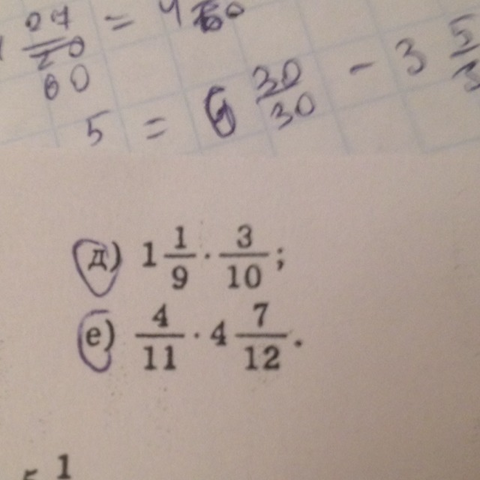 = 4
60
5 = 6 30/30 - 3 5
д) 1 1/9 · 3/10;
е) 4/11 · 4 7/12.
5 1